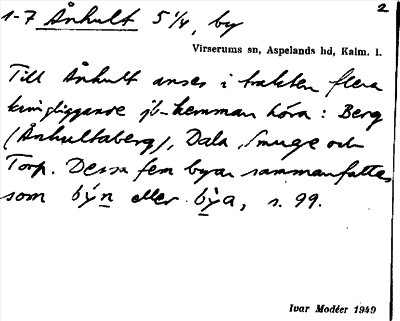 1-7 Ånhult 5 1/4, by
2
Virserums sn, Aspelands hd, Kalm. l.
Till Ånhult anses i trakten flera
kringliggande jb-hemman höra: Berg
(Ånhultaberg), Dala, Smuge och
Torp. Dessa fem byar sammanfattas
som býn eller býa, s. 99.
Ivar Modéer 1949